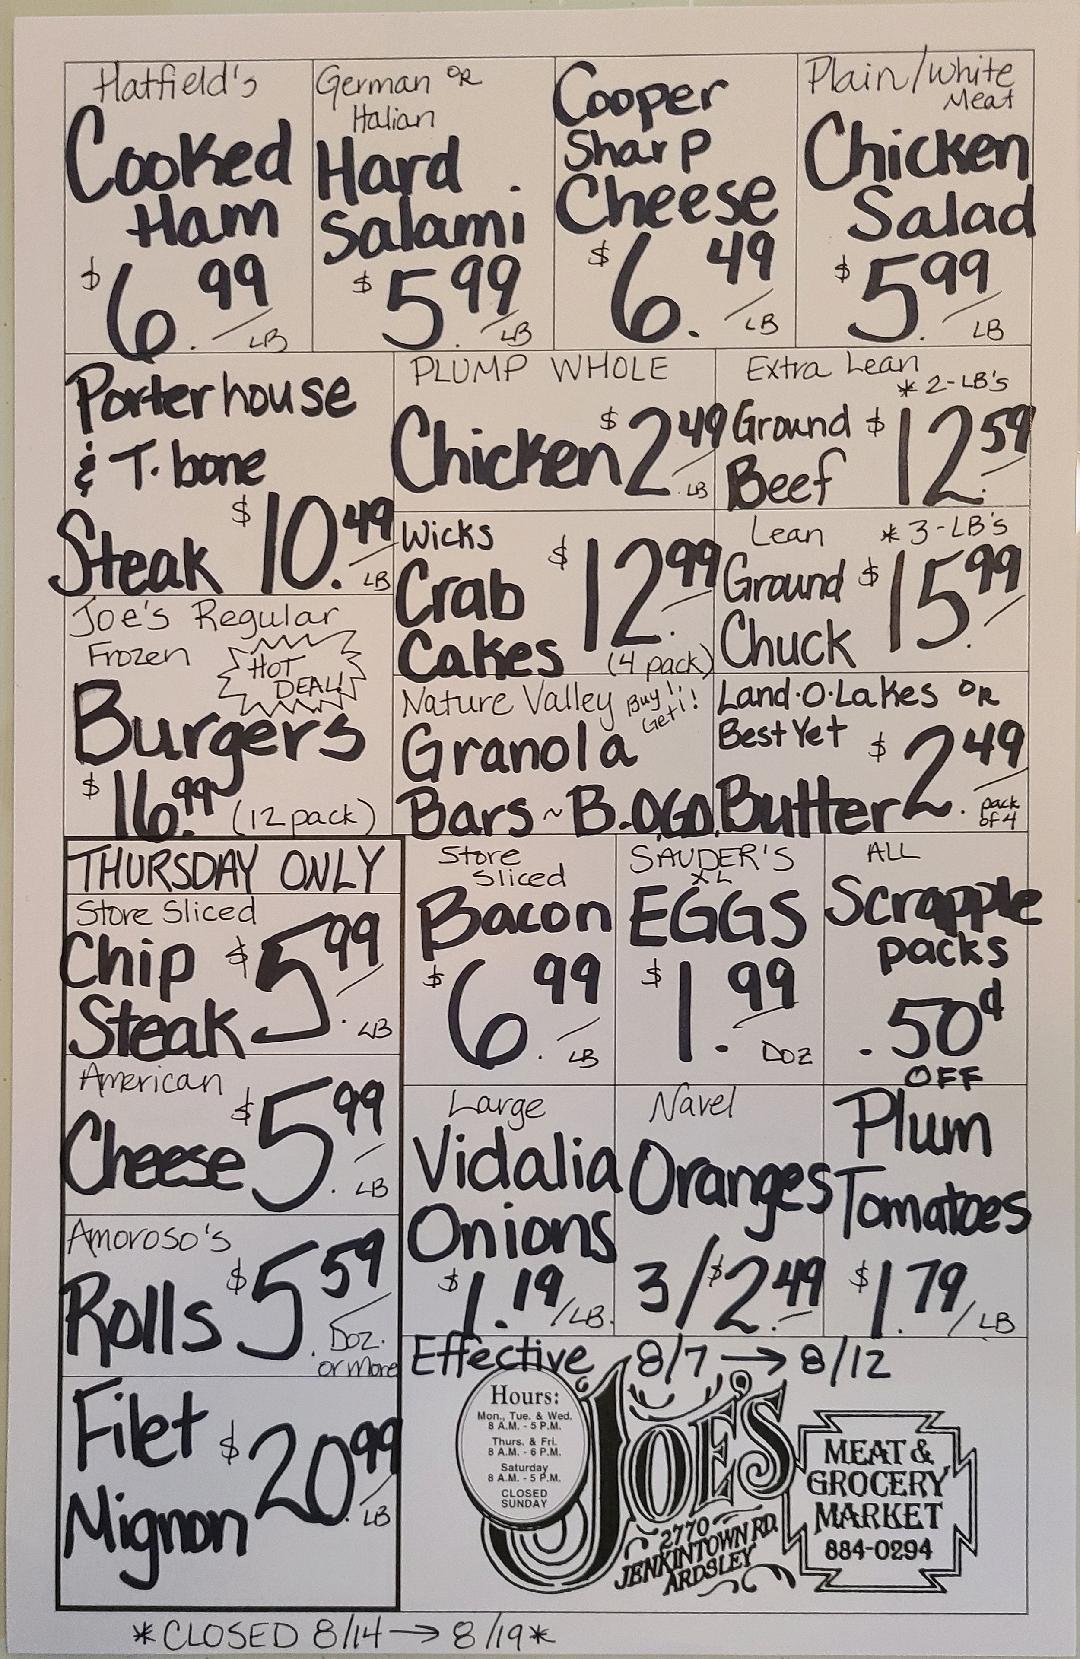 Hatfield's
Cooked
Ham
$6.99/LB
German OR
Italian
Hard
Salami
$5.99/LB
Cooper
Sharp
Cheese
$6.49/LB
Plain/White
Meat
Chicken
Salad
$5.99/LB
Porterhouse
& T-bone
Steak $10.49/LB
PLUMP WHOLE
Chicken $2.49/LB
Extra Lean
* 2-LB's
Ground
Beef $12.59/
Wicks
Crab
Cakes $12.99/
(4 pack)
Lean * 3-LB's
Ground
Chuck $15.99/
Joe's Regular
Frozen
HOT
DEAL!
Burgers
$16.99 (12 pack)
Nature Valley Buy 1!
Get 1!
Granola
Bars ~ B.O.G.O.
Land-O-Lakes OR
Best Yet
Butter $2.49/
pack
of 4
THURSDAY ONLY
Store Sliced
Chip
Steak $5.99/LB
American
Cheese $5.99/LB
Amoroso's
Rolls $5.59/
Doz.
or more
Filet
Mignon $20.99/LB
Store
Sliced
Bacon
$6.99/LB
SAUDER'S
XL
EGGS
$1.99/Doz
ALL
Scrapple
packs
.50¢
OFF
Large
Vidalia
Onions
$1.19/LB.
Navel
Oranges
3/$2.49
Plum
Tomatoes
$1.79/LB
Effective 8/7 → 8/12
Hours:
Mon., Tue. & Wed.
8 A.M. - 5 P.M.
Thurs. & Fri.
8 A.M. - 6 P.M.
Saturday
8 A.M. - 5 P.M.
CLOSED
SUNDAY
JOE'S
2770
JENKINTOWN RD.
ARDSLEY
MEAT &
GROCERY
MARKET
884-0294
*CLOSED 8/14 → 8/19*